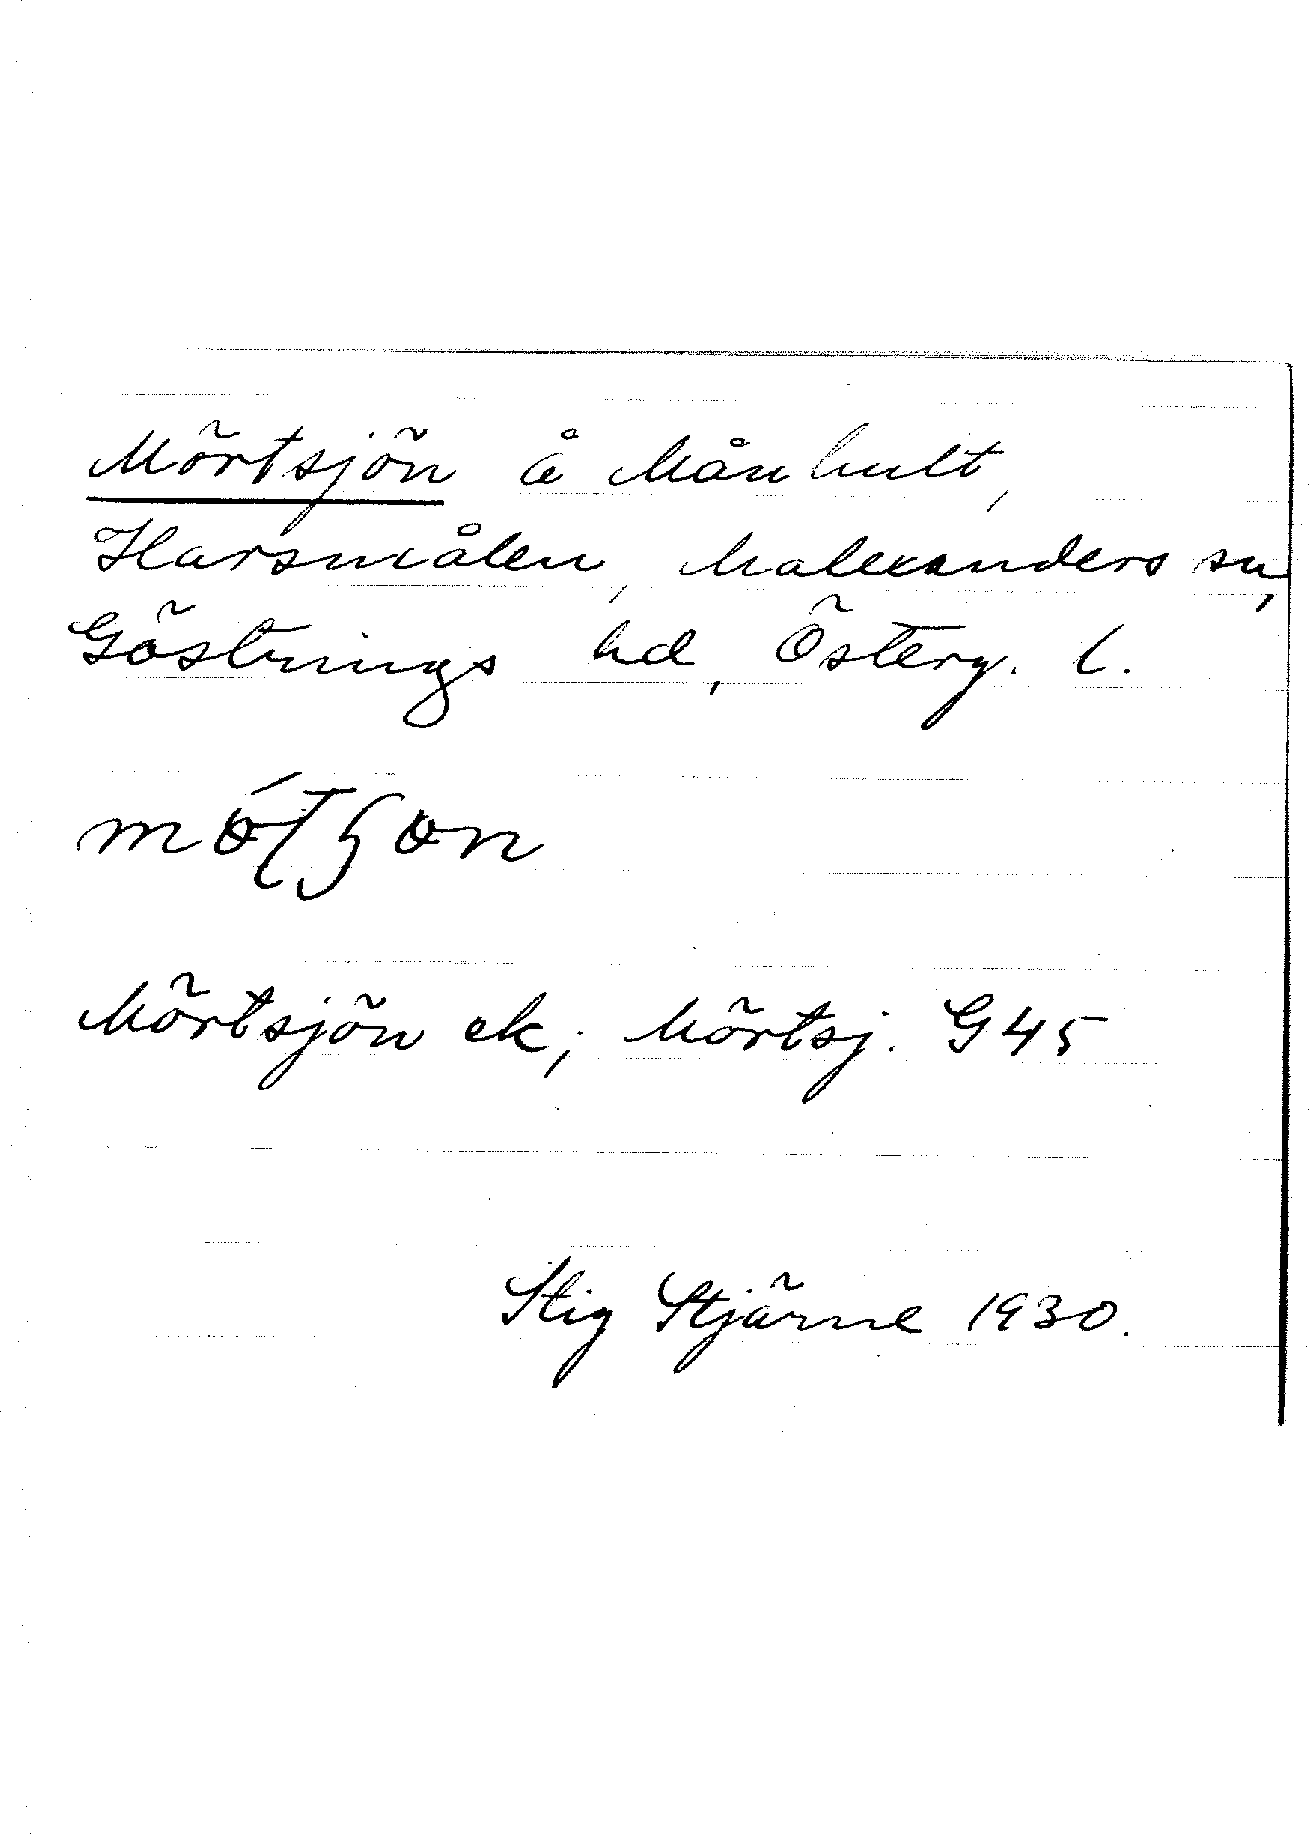 Mörtsjön å Månhult,
Harsmålen, Malexanders sn,
Göstrings hd, Österg. l.
Mörtsjön ek; Mörtsj. G45
Stig Stjärne 1930.